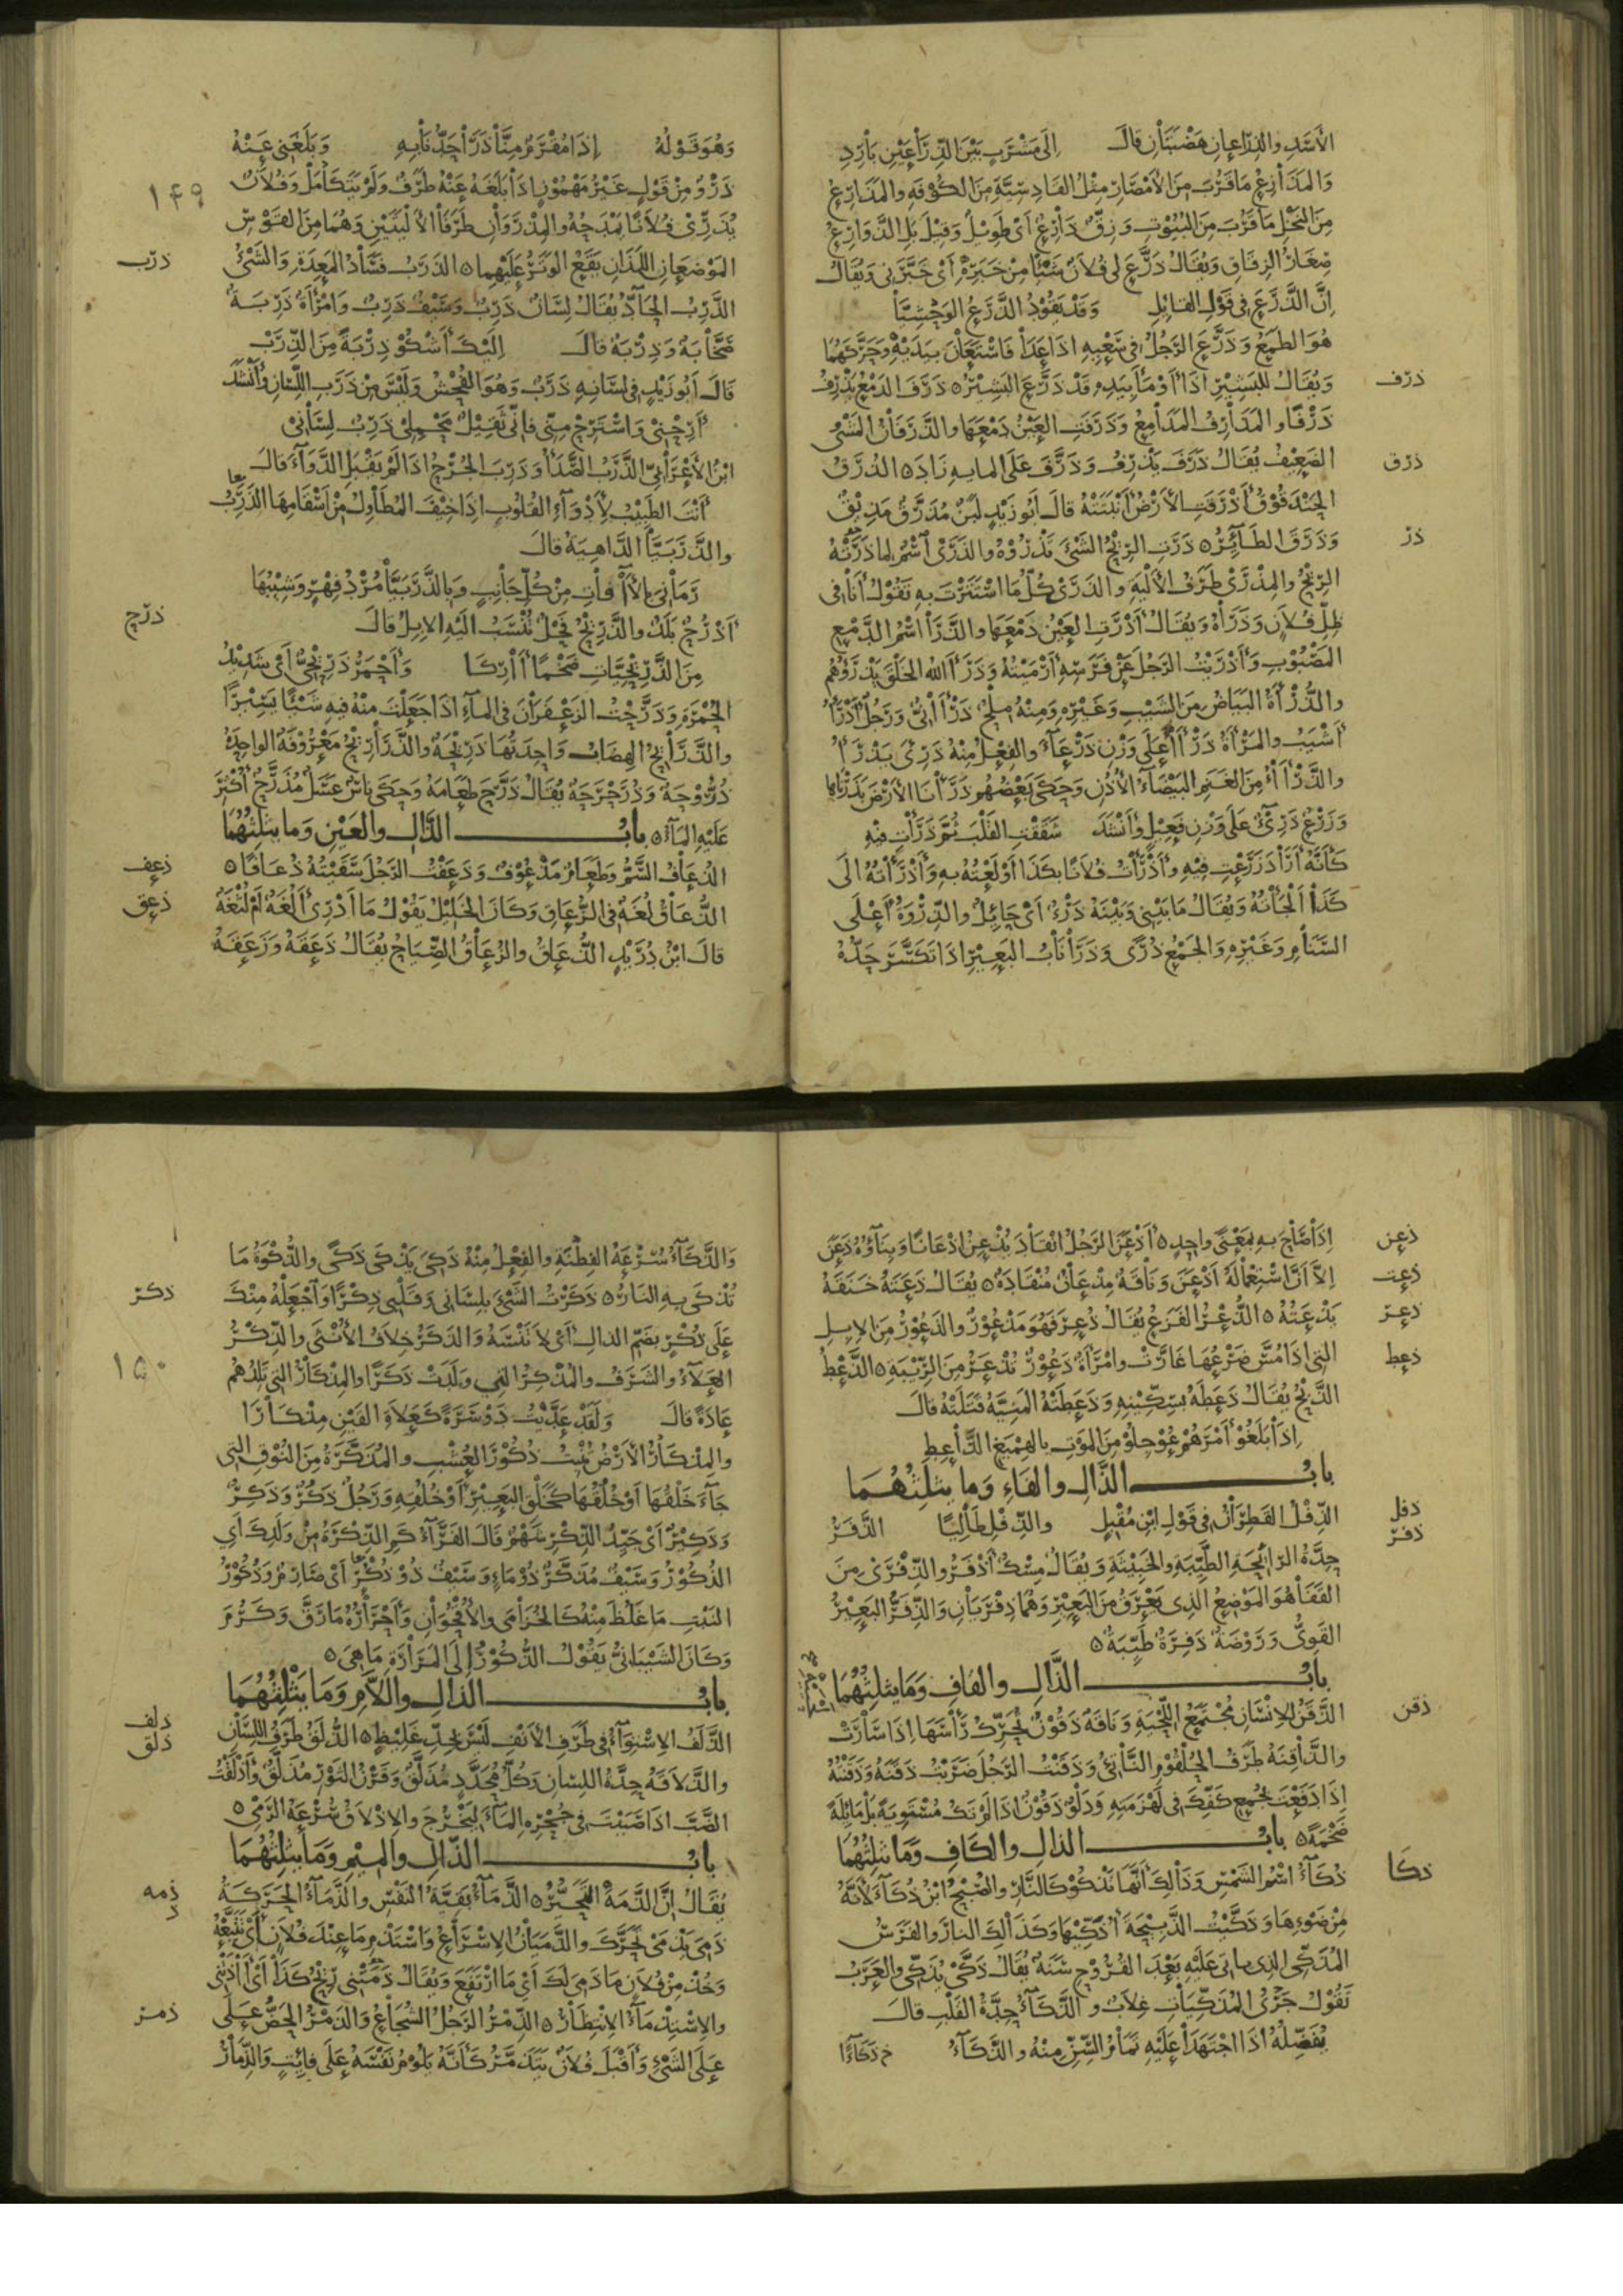 الأسد والذراعان هضبتان قال إلى مشرب بين الذراعين بارد
والمذارع ما قرب من الأمصار مثل القادسية من الكوفة والمذارع
من النخل ما قرب من البيوت وزق ذارع أي طويل وقيل بل الذوارع
صغار الزقاق ويقال ذرع لي فلان شيئا من خبره أي خبرني ويقال
إن الذرع في قول القائل وقد يقود الذرع الوحشيا
هو الطمع وذرع الرجل في سعيه اذا عدا فاستعان بيديه وحركهما
ذرف
ويقال للبشير اذا أومأ بيده قد ذرع البشير ٥ ذرف الدمع يذرف
ذرفا والمذارف المدامع وذرفت العين دمعها والذرفان المشي
ذرق
الضعيف يقال ذرف يذرف وذرف على المايه زاد ٥ الذرق
الحندقوق أذرقت الأرض أنبتته قال أبو زيد لبن مذرق مذيق
ذر
وذرق الطائر ٥ ذرت الريح الشيء تذروه والذرى اسم لما ذرته
الريح والمذرى طرف الألية والذرى كل ما استترت به تقول أنا في
ظل فلان وذراه ويقال أذرت العين دمعها والذرا اسم الدمع
المصبوب وأذريت الرجل عن فرسه أرميته وذرأ الله الخلق يذرؤهم
والذرأة البياض من الشيب وغيره ومنه ملح ذرآني ورجل أذرأ
أشيب والمرأة ذرآء على وزن ذرعاء والفعل منه ذرئ يذرأ
والذرآء من الغنم البيضاء الأذن وحكى بعضهم ذرأنا الأرض بذرناها
وزرع ذريء على وزن فعيل وأنشد شققت القلب ثم ذرأت فيه
كأنه أراد زرعت فيه وأذرأت فلانا بكذا أولعته به وأذرأته الى
كذا ألجأته ويقال ما بيني وبينه ذرء أي حائل والذروة أعلى
السنام وغيره والجمع ذرى وذرا ناب البعير اذا تكسر حده
وهو قوله إذا مقرم منا ذرا حد نابه وبلغني عنه
١٤٩
ذرو من قول غير مهموز اذا بلغه عنه طرف ولم يتكامل وفلان
يذري فلانا يمدحه والمذروان طرفا الأليتين وهما من القوس
ذرب
الموضعان اللذان يقع الوتر عليهما ٥ الذرب فساد المعدة والشيء
الذرب الحاد يقال لسان ذرب وسيف ذرب وامرأة ذربة
صخابة وذربة قال إليك أشكو ذربة من الذرب
قال أبو زيد في لسانه ذرب وهو الفحش وليس من ذرب اللسان وأنشد
أرحني واسترح مني فاني ثقيل محملي ذرب لساني
ابن الأعرابي الذرب الصدأ وذرب الجرح اذا لم يقبل الدواء قال
أنت الطبيب لأدواء القلوب اذا خيف المطاول من اسقامها الذرب
والذربيا الداهية قال
رماني بالآفات من كل جانب وبالذربيا مرد فهر وشيبها
ذرح
أذرح بلد والذريح فحل ينسب اليه الابل قال
من الذريحيات ضخما آركا وأحمر ذريحي أي شديد
الحمرة وذرحت الزعفران في الماء اذا جعلت منه فيه شيئا يسيرا
والذرائح الهضاب واحدتها ذريحة والذراريح معروفة الواحدة
ذروحة وذرحرحة يقال ذرح طعامه وحكى ناس عسل مذرح أكثر
عليه الماء ٥ باب الذال والعين وما يثلثهما
ذعف
الذعاف السم وطعام مذعوف وذعفت الرجل سقيته ذعافا ٥
ذعق
الذعاق لغة في الزعاق وكان الخليل يقول ما أدري ألغة أم لثغة
قال ابن دريد الذعاق والزعاق الصياح يقال ذعقه وزعقه
ذعن
إذا صاح به بمعنى واحد ٥ أذعن الرجل انقاد يذعن إذعانا وبناؤه ذعن
ذعت
إلا أن استعماله أذعن وناقة مذعان منقادة ٥ يقال ذعته خنقه
ذعر
يذعته ٥ الذعر الفزع يقال ذعر فهو مذعور والذعور من الابل
ذعط
التي اذا مس ضرعها غارت وامرأة ذعور تذعر من الريبة ٥ الذعط
الذبح يقال ذعطه بسكينه وذعطته المنية قتلته قال
إذا بلغوا أمرهم عوجلوا من الموت بالهميغ الذاعط
باب الذال والفاء وما يثلثهما
ذفل
الذفل القطران في قول ابن مقبل والذفل طاليا الذفر
ذفر
حدة الرائحة الطيبة والخبيثة ويقال مسك أذفر والذفرى من
القفا هو الموضع الذي يعرق من البعير وهما ذفريان والذفر البعير
القوي وروضة ذفرة طيبة ٥
باب الذال والقاف وما يثلثهما
ذقن
الذقن الانسان مجتمع اللحية وناقة ذقون تحرك رأسها إذا سارت
والذاقنة طرف الحلقوم الناتئ وذقنت الرجل ضربت ذقنه وذقنته
إذا دفعت بجمع كفك في لهزمته ودلو ذقون اذا لم تك مستوية بل مائلة
ضخمة ٥ باب الذال والكاف وما يثلثهما
ذكا
ذكاء اسم الشمس وذلك أنها تذكو كالنار والصبح ابن ذكاء لأنه
من ضوءها وذكيت الذبيحة أذكيها وكذلك النار والفرس
المذكي الذي ياتي عليه بعد القروح سنة يقال ذكى يذكي والعرب
تقول جري المذكيات غلاب والذكاء حدة القلب قال
يفضله اذا اجتهدا عليه تمام السن منه والذكاء
والذكاء سرعة الفطنة والفعل منه ذكي يذكى ذكى والذكوة ما
ذكر
تذكى به النار ٥ ذكرت الشيء بلساني وقلبي ذكرا واجعله منك
على ذكر بضم الذال أي لا تنسه والذكر خلاف الأنثى والذكر
١٥٠
العلاء والشرف والمذكر التي ولدت ذكرا والمذكار التي تلدهم
عادة قال ولقد عديت دوسرة كعلاة القين مذكارا
والمذكار الأرض تنبت ذكور العشب والمذكرة من النوق التي
جآء خلقها أو خلقها كخلق البعير أو خلقه ورجل ذكر وذكر
وذكير أي جيد الذكر شهم قال الفراء كم الذكرة من ولدك أي
الذكور وسيف مذكر ذو ماء وسيف ذو ذكر أي صارم وذكور
النبت ما غلظ منه كالخزامى والاقحوان وأحراره ما رق وكرم
وكان الشيباني يقول الذكور إلى المرارة ما هي ٥
باب الذال واللام وما يثلثهما
ذلف
الذلف الاستواء في طرف الأنف ليس بحد غليظ ٥ الذلق طرف اللسان
ذلق
والذلاقة حدة اللسان وكل محدد مذلق وقرن الثور مذلق وأذلقت
الضب اذا صببت في جحره الماء ليخرج والاذلاق سرعة الرمي ٥
باب الذال والميم وما يثلثهما
ذمه
يقال إن الذمه التحير ٥ الذماء بقية النفس والذماء الحركة
ذمي يذمى تحرك والذميان الاسراع واستذم ما عند فلان أي تتبعه
وخذ من فلان ما ذمي لك أي ما ارتفع ويقال ذمتني ريح كذا أي آذتني
ذمر
والاستذماء الانتظار ٥ الذمر الرجل الشجاع والذمر الحض على
على الشيء وأقبل فلان يتذمر كأنه يلوم نفسه على فائت والذمار